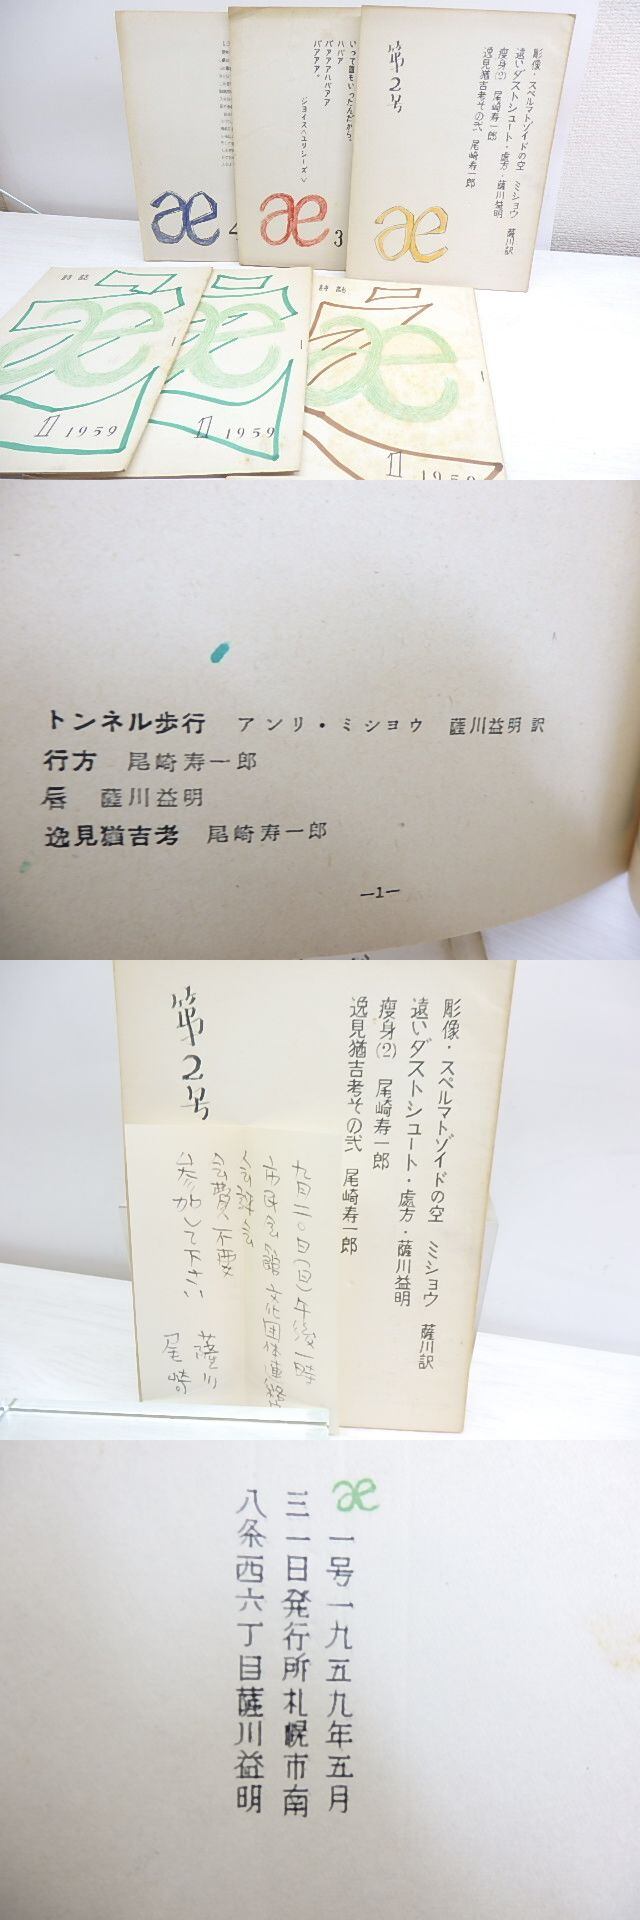 æ
4
いって誰もいったんだから。
ハバア
バァアアハバアア
バアアア。
ジョイス〈ユリシーズ〉
æ
3
彫像・スペルマトゾイドの空 ミショウ 薩川訳
遠いダストシュート・處方・薩川益明
痩身(2) 尾崎寿一郎
逸見猶吉考その弐 尾崎寿一郎
第2号
æ
詩誌
æ
1 1959
æ
1 1959
詩誌
æ
1 1959
トンネル歩行 アンリ・ミシヨウ 薩川益明訳
行方 尾崎寿一郎
唇 薩川益明
逸見猶吉考 尾崎寿一郎
—1—
彫像・スペルマトゾイドの空 ミショウ 薩川訳
遠いダストシュート・處方・薩川益明
痩身(2) 尾崎寿一郎
逸見猶吉考その弐 尾崎寿一郎
第2号
九月二〇日(日)午後一時
市民会館文化団体連絡
会費不要
参加して下さい
薩川
尾崎
æ 一号一九五九年五月
三一日発行所札幌市南
八条西六丁目薩川益明